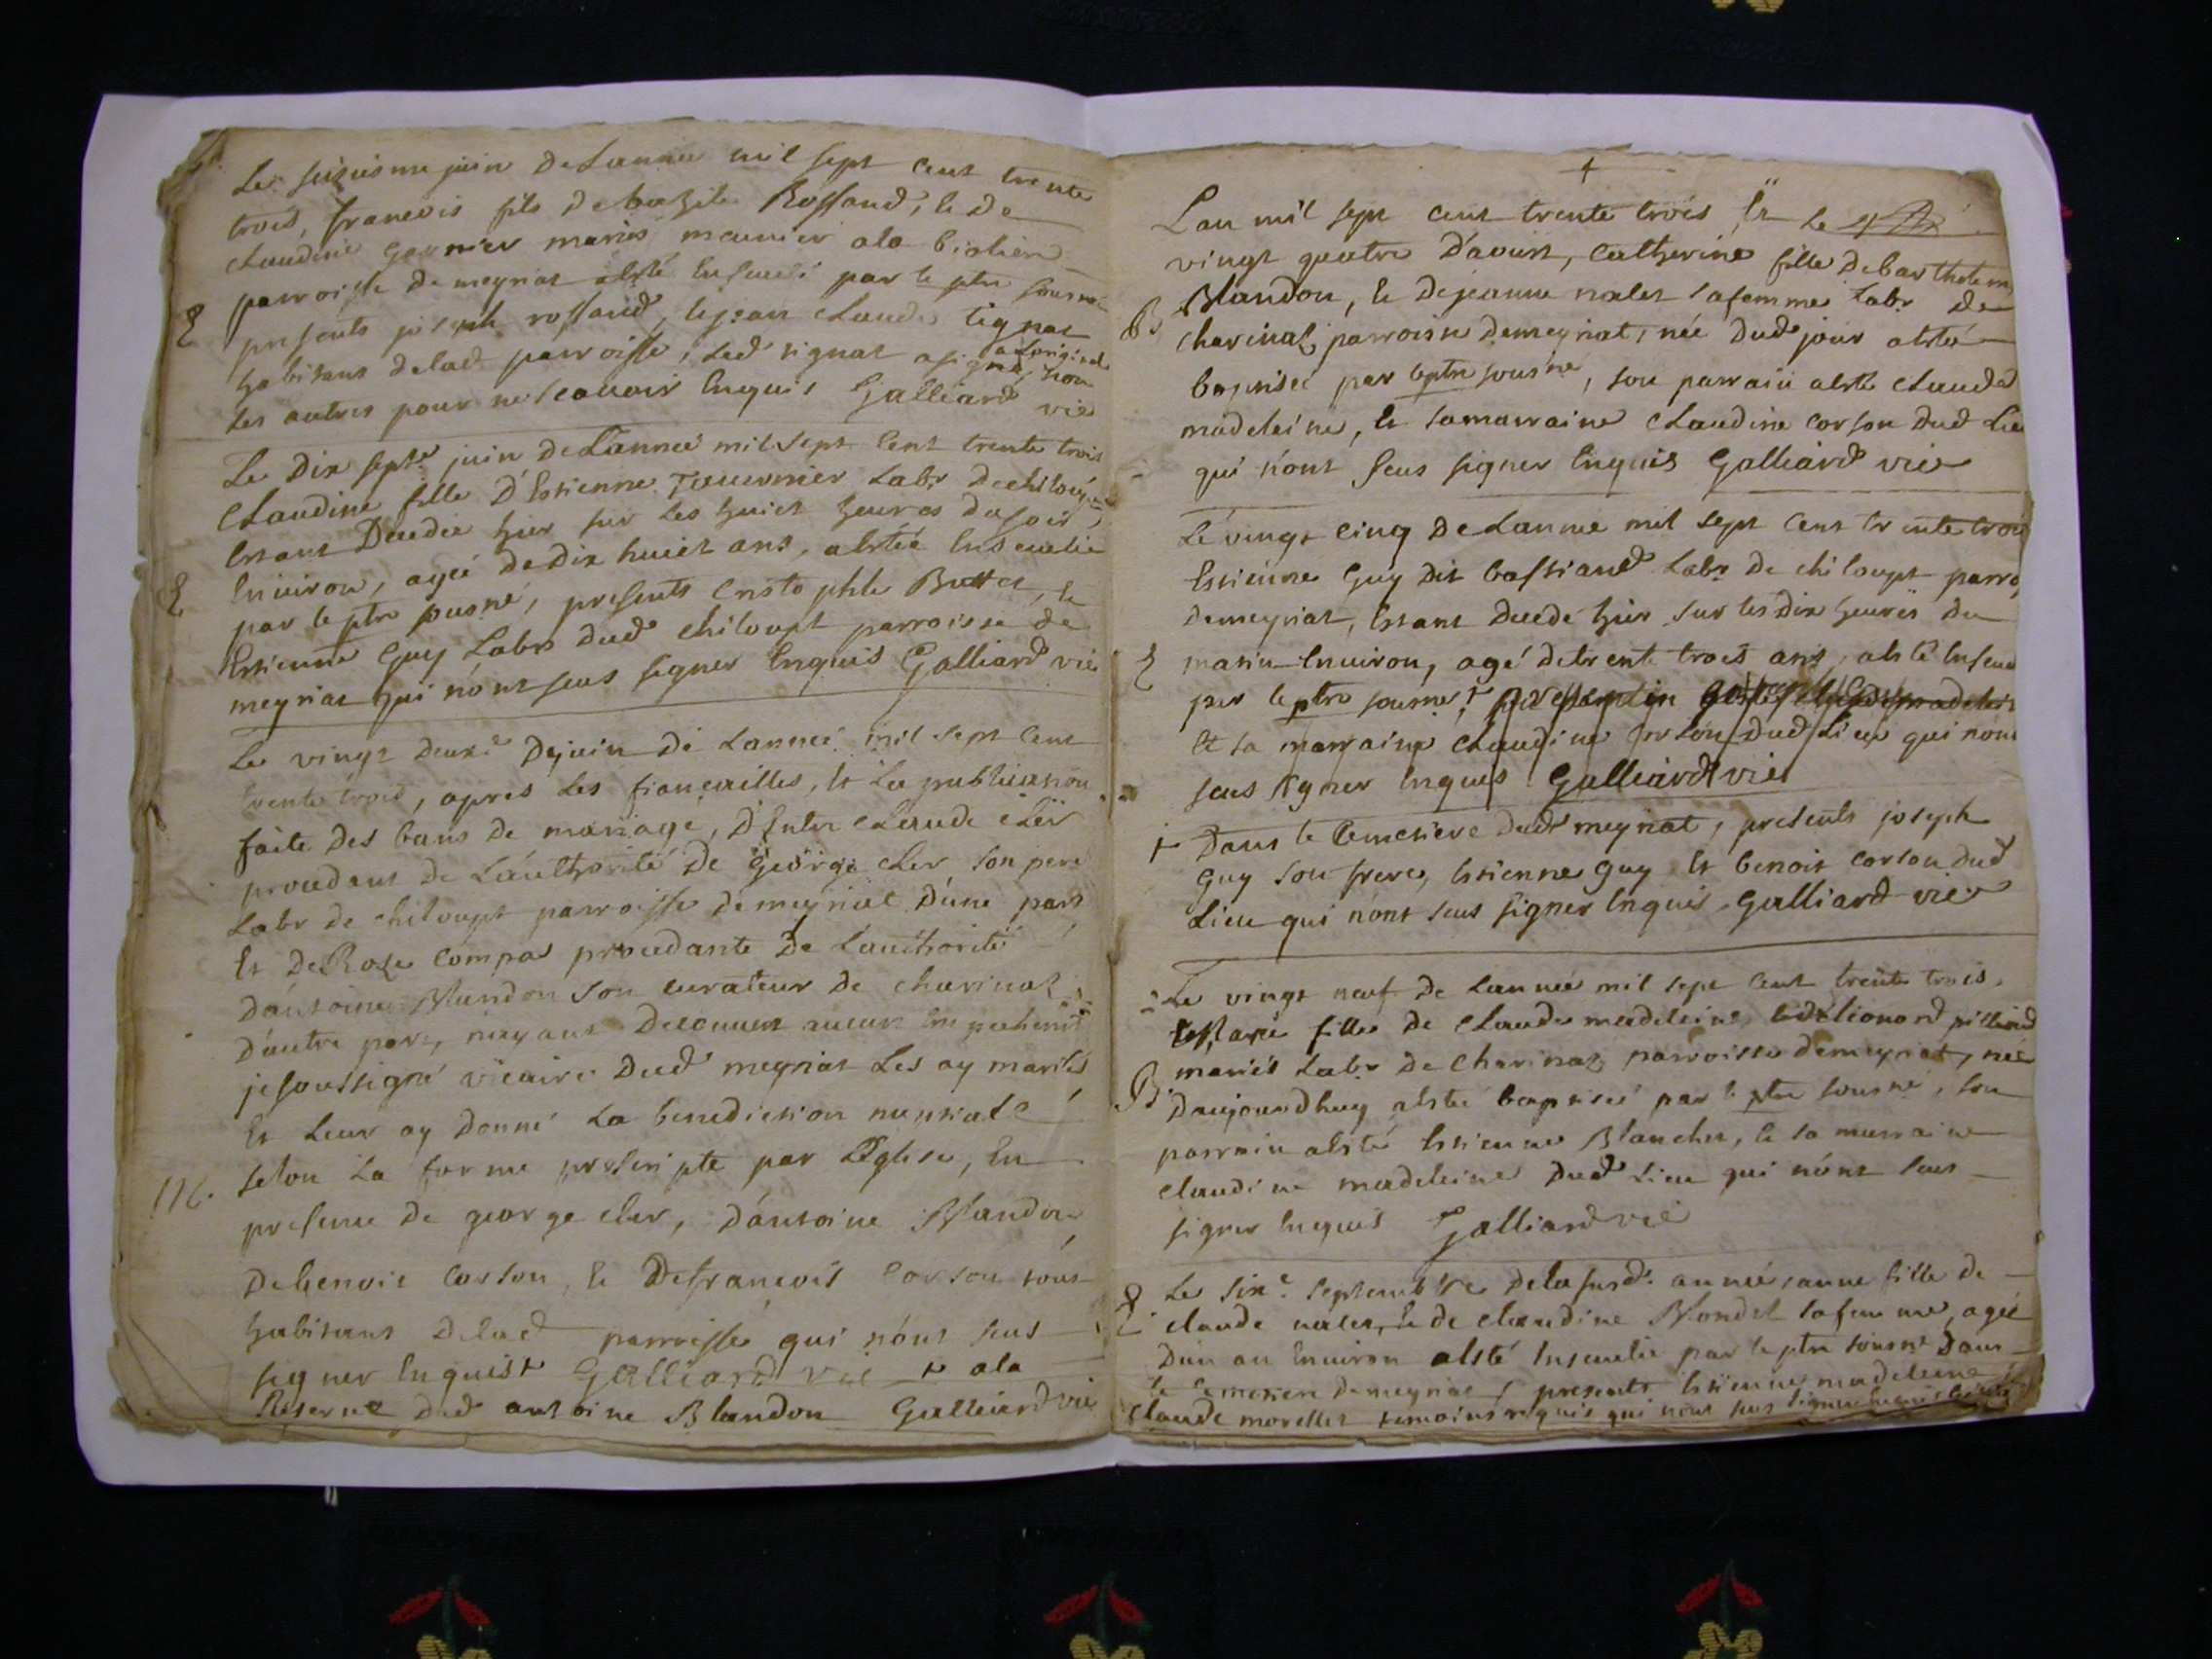 Le seisiesme juin de Lannee mil sept cent trente
trois, francois fils de bazile Rossand, & de
claudine Garnier mariés meunier a la
parroisse de meyriat a esté Enseveli par le ptre sousné
E presents joseph rossand, & jean claude tignat
habitans de lad parroisse, led tignat a signé a Loriginal non
les autres pour ne scavoir Enquis Galliard vic
Le Dix septe juin de Lannee mil sept Cent trente trois
Claudine fille d'Estienne Tavernier Labr de chiloup
Estant Decedée hier sur les huict heures du soir
E Environ, ageé de dix huict ans, a estée Enseuelie
par le ptre sousné, presents Cristophle Buttet, &
Estienne Guy Labrs dud chiloupt parroisse de
meyriat qui nont sceus signer Enquis Galliard vic
Le vingt deuxe De juin de Lanneé mil sept Cent
trente trois, apres les fiançailles, & La publication
faite des bans de mariage, D'Entre claude cler
procedant de Lauthorité de George cler son pere
Labr de chiloupt parroisse de meyriat d'une part
Et de Roze Compa procedante de Lauthorité
d'antoine Blandon son curateur de charinaz
d'autre part, n'ayant Decouuert aucun Empechemt
je soussigné vicaire Dud meyriat Les ay mariés
Et Leur ay Donné La benediction nuptiale
M. selon La forme prescripte par L'Eglise, En
presence de george cler, d'antoine Blandon
De benoit Corson, & De francois Corson tous
habitans de lad parroisse qui nont sceus
signer Enquis + Galliard vic + a la
Reserve dud antoine Blandon Galliard vic
+
Lan mil sept cent trente trois, Et le
vingt quatre D'aoust, Catherine fille de barthelemy
B Blandon, & de jeanne nalet sa femme Labr de
charinaz parroisse de meyriat, née dud jour a esté
baptiseé par le ptre sousné, son parrain a esté claude
madeleine, & sa marraine claudine corson dud Lieu
qui nont sceus signer Enquis Galliard vic
Le vingt cinq de Lannee mil sept Cent trente trois
Estienne Guy dit bastiand Labr de chiloupt parro
de meyriat, Estant decedé hier sur les dix heures du
E matin Environ, agé de trente trois ans, a esté Enseueli
par le ptre sousné +
Et sa marraine claudine Corson dud Lieu qui nont
sceus signer Enquis Galliard vic
+ Dans le Cemetiere dud meyriat, presents joseph
Guy son frere, Estienne Guy & benoit corson dud
Lieu qui nont sceus signer Enquis Galliard vic
Le vingt neuf de Lanneé mil sept Cent trente trois
marie fille de claude madeleine, & de lionord
mariés Labr de charinaz parroisse de meyriat, neé
B D'aujourdhuy a esteé baptiseé par le ptre sousné, son
parrain a esté Estienne Blanchet, & sa marraine
claudine madeleine dud Lieu qui nont sceus
signer Enquis Galliard vic
E Le sixe Septembre de la susd. anneé, anne fille de
claude nalet, & de claudine Blondel sa femme, ageé
D'un an Environ a esté Enseuelie par le ptre sousné Dans
le Cemetiere de meyriat, presents Estienne madeleine
Claude morellet temoins requis qui nont sceus signer